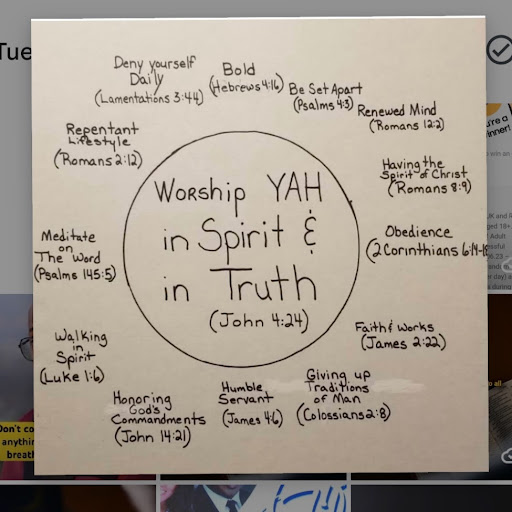 Tue
Deny yourself
Daily
(Lamentations 3:44)
Bold
(Hebrews 4:16)
Be Set Apart
(Psalms 4:3)
Renewed Mind
(Romans 12:2)
Having the
Spirit of Christ
(Romans 8:9)
Obedience
(2 Corinthians 6:14-18
Faith & Works
(James 2:22)
Giving up
Traditions
of Man
(Colossians 2:8)
Humble
Servant
(James 4:6)
Honoring
God's
Commandments
(John 14:21)
Walking
in
Spirit
(Luke 1:6)
Meditate
on
The Word
(Psalms 145:5)
Repentant
Lifestyle
(Romans 2:12)
Worship YAH
in Spirit &
in Truth
(John 4:24)
Don't
breath